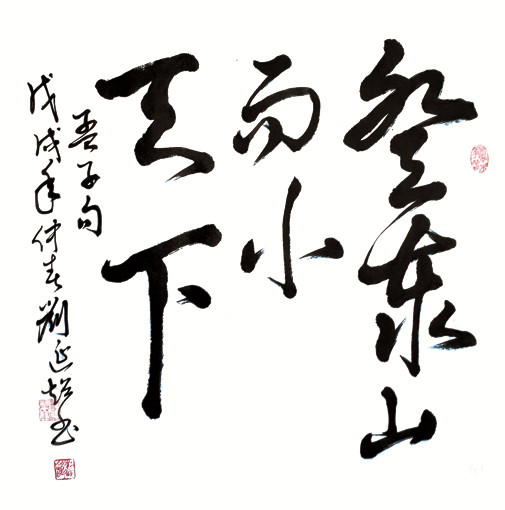 登泰山
而小
天下
孟子句
戊戌年仲春劉延超书